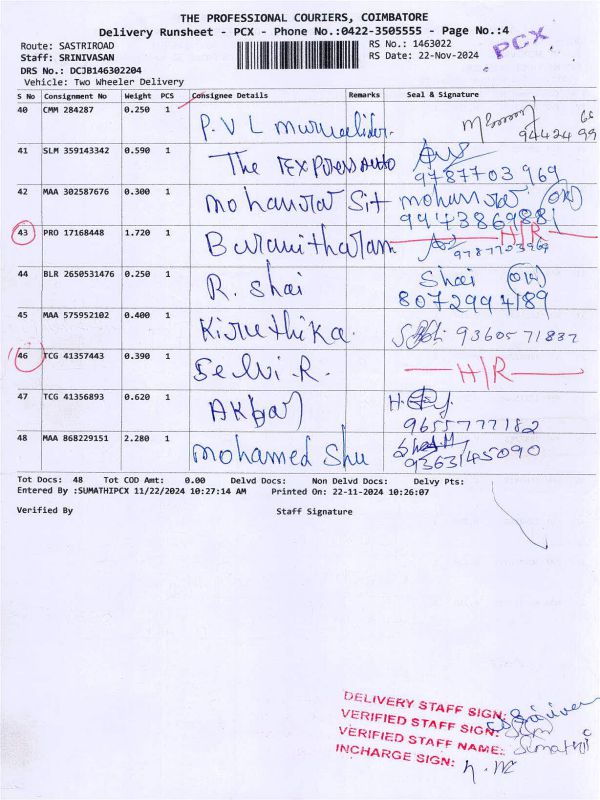 THE PROFESSIONAL COURIERS, COIMBATORE
Delivery Runsheet - PCX - Phone No.:0422-3505555 - Page No.:4
Route: SASTRIROAD RS No.: 1463022 PCX
Staff: SRINIVASAN RS Date: 22-Nov-2024
DRS No.: DCJB146302204
Vehicle: Two Wheeler Delivery
S No Consignment No Weight PCS Consignee Details Remarks Seal & Signature
40 CMM 284287 0.250 1 P. V L
41 SLM 359143342 0.590 1 The TEXPress Auto 9787703969
42 MAA 302587676 0.300 1 Sit OK
43 PRO 17168448 1.720 1 Baranitharan H/R 9787703969
44 BLR 2650531476 0.250 1 R. Shai Shai OK
8072994189
45 MAA 575952102 0.400 1 Kiruthika. 9360571837
46 TCG 41357443 0.390 1 Selvi. R. H/R
47 TCG 41356893 0.620 1 Akbar 9655777182
48 MAA 868229151 2.280 1 mohamed Shu 9363145090
Tot Docs: 48 Tot COD Amt: 0.00 Delvd Docs: Non Delvd Docs: Delvy Pts:
Entered By :SUMATHIPCX 11/22/2024 10:27:14 AM Printed On: 22-11-2024 10:26:07
Verified By Staff Signature
DELIVERY STAFF SIGN:
VERIFIED STAFF SIGN:
VERIFIED STAFF NAME: Sumathi
INCHARGE SIGN: